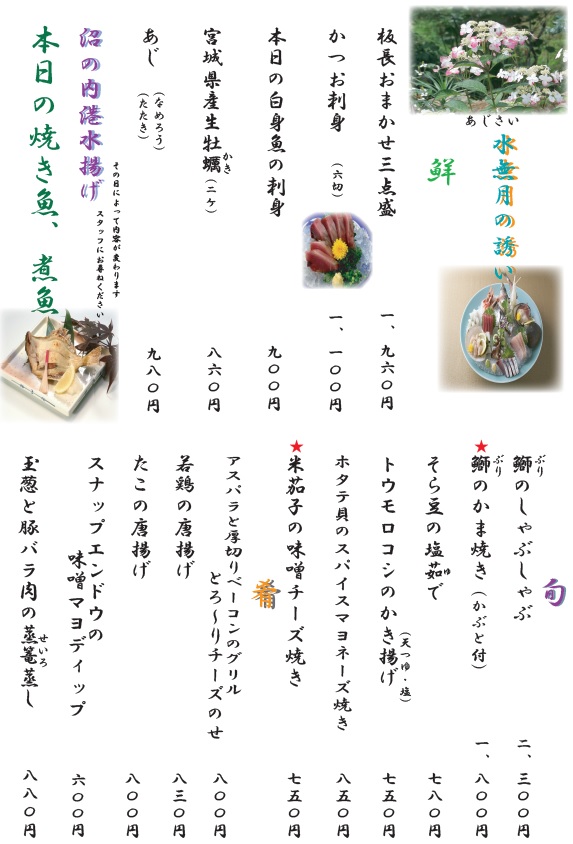 あじさい
水無月の誘い
鮮
板長おまかせ三点盛 一、九六〇円
かつお刺身 （六切） 一、一〇〇円
本日の白身魚の刺身 九〇〇円
宮城県産生牡蠣（二ケ） 八六〇円
かき
あじ （なめろう）（たたき） 九八〇円
沼の内港水揚げ
その日によって内容が変わります
スタッフにお尋ねください
本日の焼き魚、煮魚
旬
鰤のしゃぶしゃぶ 二、三〇〇円
ぶり
★鰤のかま焼き（かぶと付） 一、八〇〇円
ぶり
そら豆の塩茹で 七八〇円
ゆ
トウモロコシのかき揚げ（天つゆ・塩） 七五〇円
ホタテ貝のスパイスマヨネーズ焼き 八五〇円
★米茄子の味噌チーズ焼き 七五〇円
肴
アスパラと厚切りベーコンのグリル
とろ～りチーズのせ 八〇〇円
若鶏の唐揚げ 八三〇円
たこの唐揚げ 八〇〇円
スナップエンドウの
味噌マヨディップ 六〇〇円
玉葱と豚バラ肉の蒸篭蒸し 八八〇円
せいろ